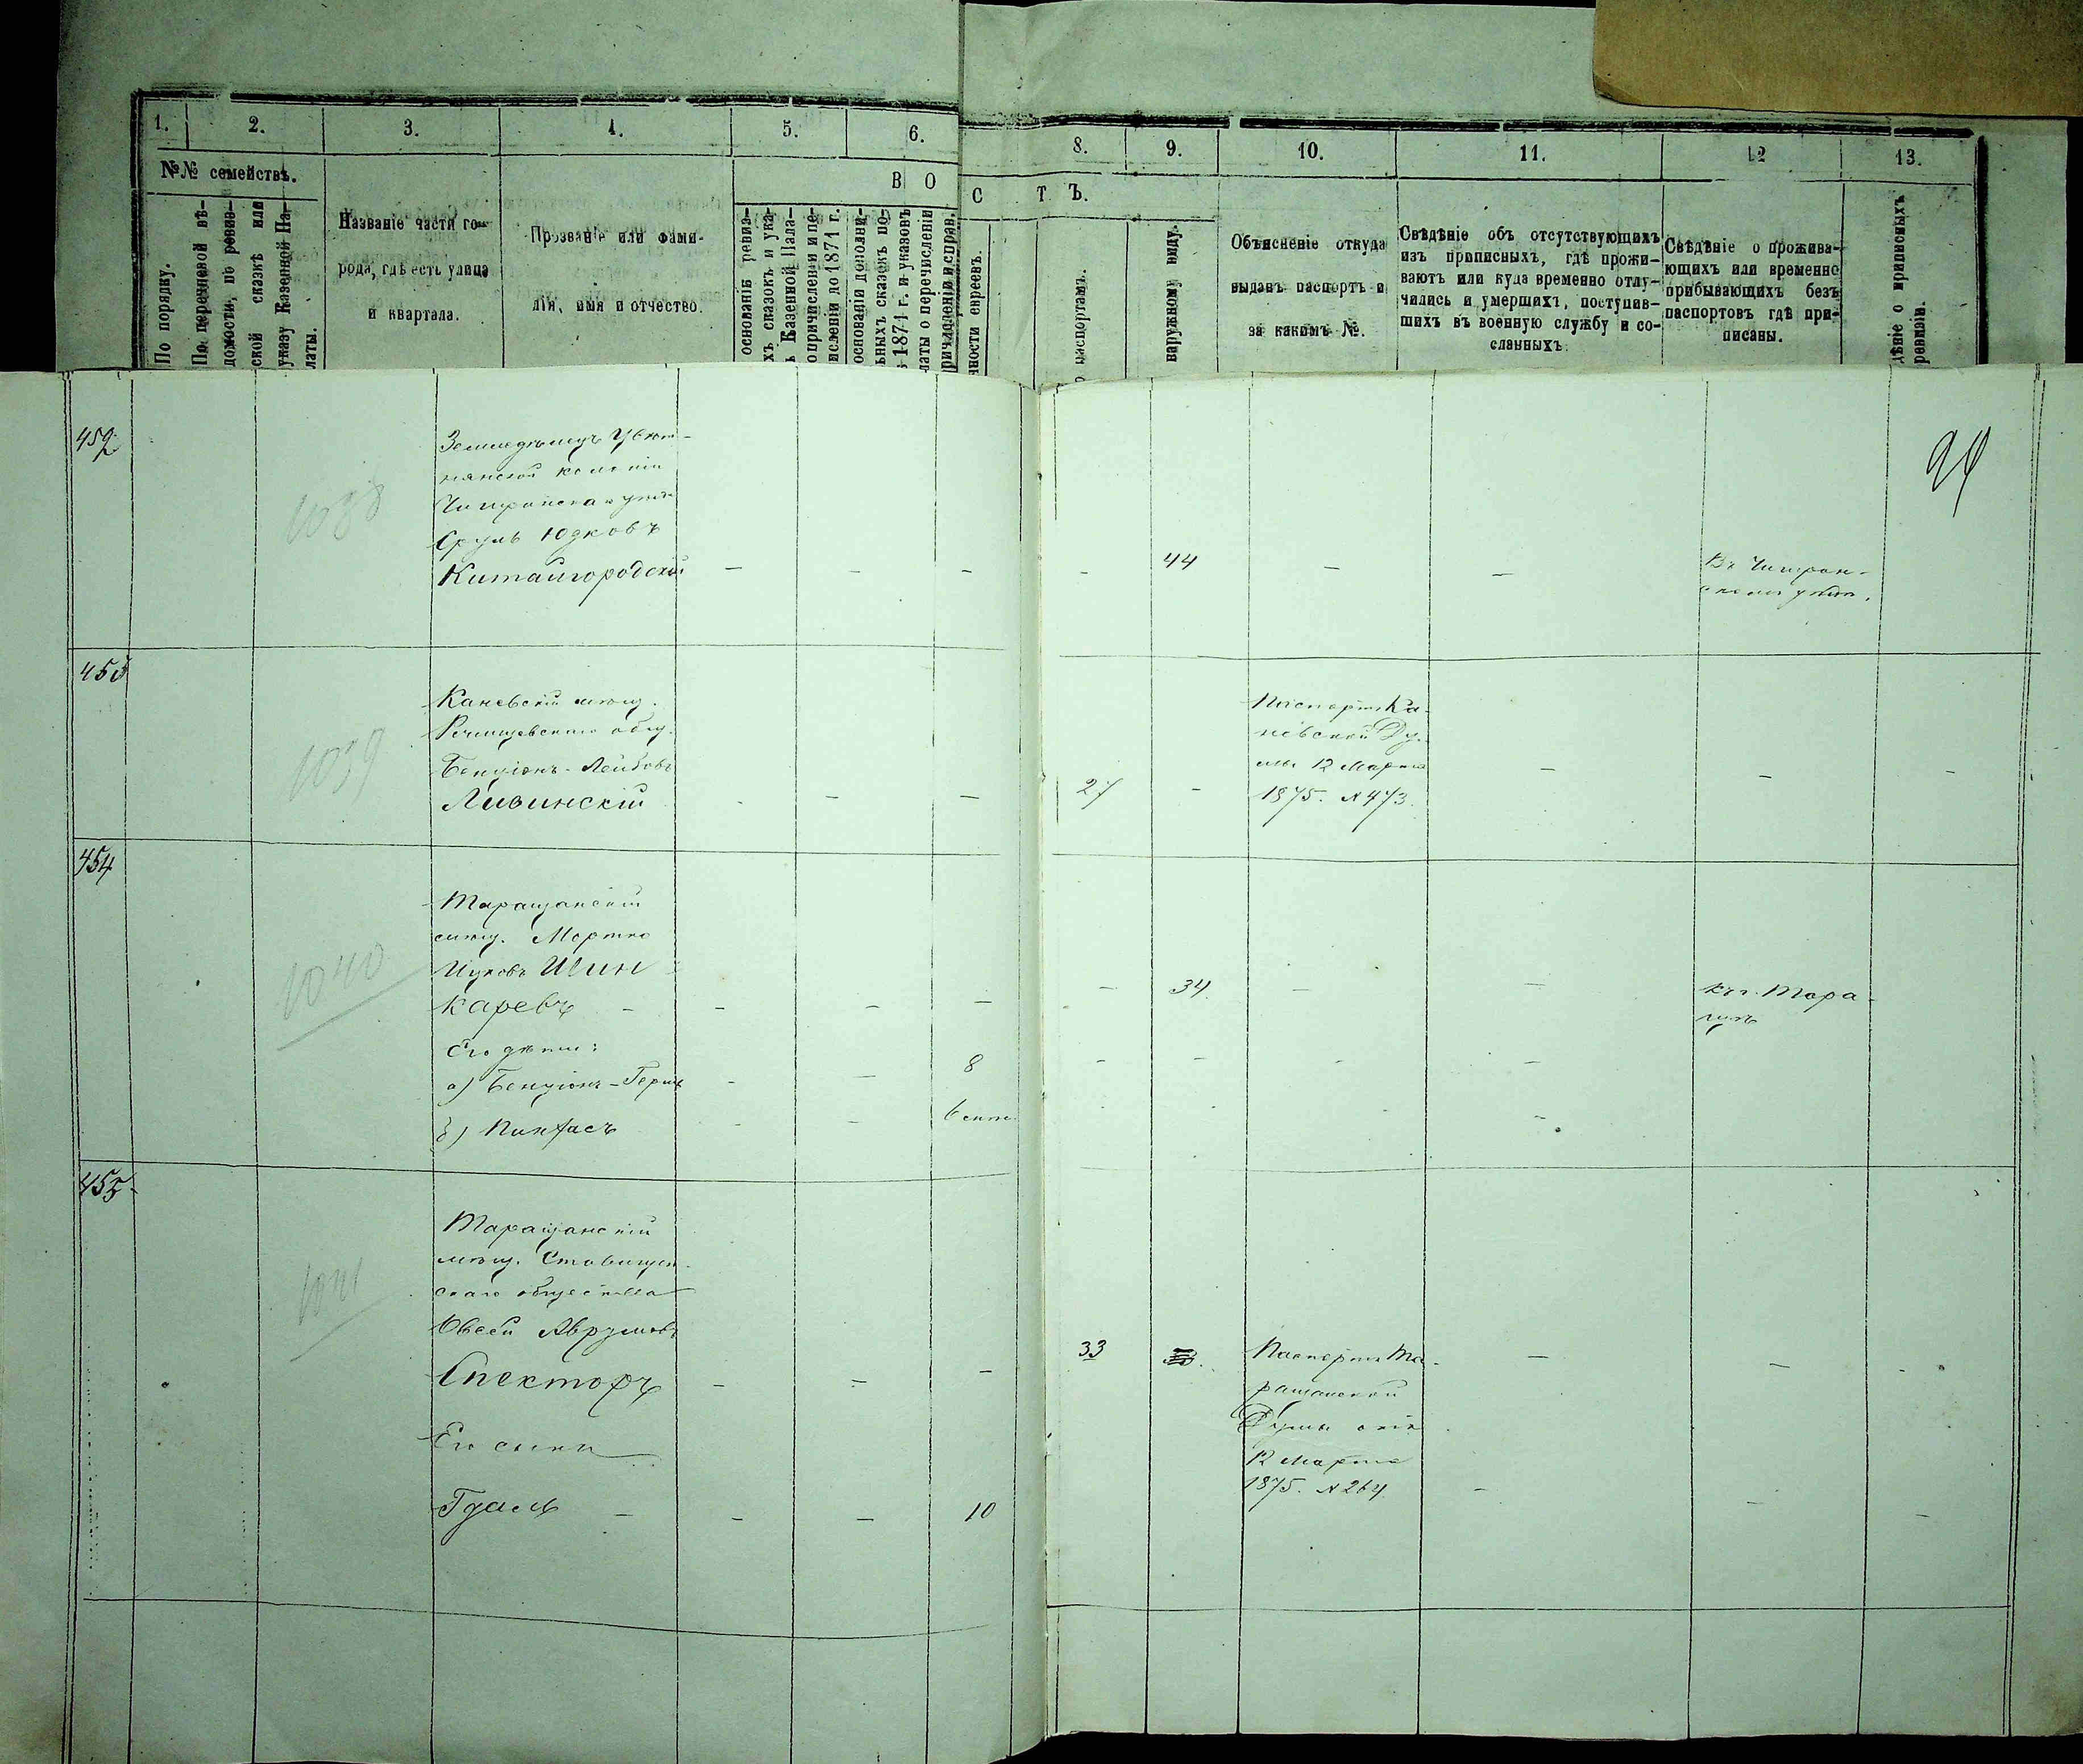 1.
2.
3.
4.
5.
6.
8.
9.
10.
11.
12
13.
№№ семействъ.
По порядку.
По перечневой вѣ-
домости, по ревиз-
ской сказкѣ или
указу Казенной Па-
латы.
Названіе части го-
рода, гдѣ есть улица
и квартала.
Прозваніе или фами-
лія, имя и отчество.
В О
С Т Ъ.
основаніѣ ревиз-
хъ сказокъ и ука-
ъ Казенной Пала-
о причисленіи и пе-
исленіи до 1871 г.
основаніи дополни-
ьныхъ сказокъ по-
ѣ 1871 г. и указовъ
латы о перечисленіи
причисленіи и справ.
нности евреевъ.
о паспортамъ.
наружному виду.
Объясненіе откуда
выданъ паспортъ и
за какимъ №.
Свѣдѣніе объ отсутствующихъ
изъ приписныхъ, гдѣ прожи-
ваютъ или куда временно отлу-
чились и умершихъ, поступив-
шихъ въ военную службу и со-
сланныхъ.
Свѣдѣніе о прожива-
ющихъ или временно
прибывающихъ безъ
паспортовъ гдѣ при-
писаны.
дѣніе о приписныхъ
ревизіи.
452
1038
Земледѣлецъ
колоніи
Сруль Юдковъ
Китайгородскій
-
-
-
-
44
-
-
Въ Чигирин-
скомъ уѣздѣ.
94
453
1039
Каневскій мѣщ.
общ.
Бенціонъ-Лейбовъ
Ливинскій
-
-
-
27
-
Паспортъ Ка-
невской Ду-
мы 12 Марта
1875. N 473.
-
-
-
454
1040
Таращанскій
мѣщ. Мортко
Ицковъ Шин
каревъ
-
-
-
-
-
34.
-
-
Въ г. Тара-
щѣ
Его дѣти:
а) Бенціонъ-Герш
-
-
8
-
-
-
-
б) Пинхасъ
-
-
-
455
1041
Таращанскій
мѣщ. Ставищен-
скаго общества
Овсей Аврумовъ
Спекторъ
-
-
-
33
Паспортъ Та-
ращанской
Думы отъ
12 Марта
1875. N 264
-
-
-
Его сынъ
Гдаль
-
-
-
10
-
-
-